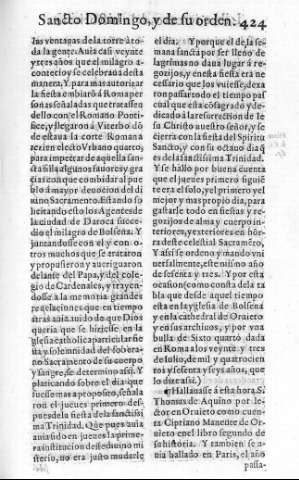 Sancto Domingo, y de su orden. 424
las ventanas de la torre a to-
da la gente. Auia casi veynte
y tres años que el milagro a-
contecio y se celebraua desta
manera. Y para mas autorizar
la fiesta embiarõ a Roma per-
sonas señaladas que tratassen
dello con el Romano Ponti-
fice, y llegarõ a Viterbo dõ
de estaua la corte Romana
rezien electo Vrbano quarto,
para impetrar de aquella san-
cta silla, algunos fauores y gra
cias con que combidar al pue
blo a mayor deuocion del di
uino Sacramento. Estando so
licitando esto los Agentes de
la ciudad de Daroca succe-
dio el milagro de Bolsena. Y
juntandose con el y con o-
tros muchos que se trataron
y propusieron y aueriguaron
delante del Papa, y del cole-
gio de Cardenales, y trayen-
dose a la memoria grandes
reuelaciones que en tiempo
atras auia auido de que Dios
queria que se hiziesse en la
yglesia catholica particular fie
sta y solennidad del sobera-
no Sacramento de su cuerpo
y sangre, se determino assi. Y
platicando sobre el dia que
fuesse mas a proposito, señala
ron el jueues primero des-
pues de la fiesta de la sanctissi
ma Trinidad. Que pues auia
sido en jueues la prime-
ra institucion deste diuino mi
sterio, no era justo mudarle
el dia. Y porque el de la se-
mana sancta por ser lleno de
lagrimas no daua lugar a re-
gozijos, y en esta fiesta era ne
cessario que los vuiesse, dexa
ron passar todo el tiempo pas
cual que esta cõsagrado y de-
dicado a la resurreccion de Ie
su Christo nuestro señor, y se
cierra con la fiesta del Spiritu
Sancto, y con su octauo dia q̃
es de la sanctissima Trinidad.
Y se hallo por buena cuenta
que el jueues primero siguiẽ
te era el solo, el primero y el
mejor y mas propio dia, para
gastarle todo en fiestas y re-
gozijos de alma y cuerpo in-
teriores, y exteriores en hon-
ra deste celestial Sacramẽto,
Y assi se ordeno y mando vni
uersalmente, este mismo año
de sesenta y tres. Y por esta
ocasion (como consta de la ta
bla que desde aquel tiempo
esta en la yglesia de Bolsena
y en la cathedral de Oruieto
y en sus archiuos, y por vna
bulla de Sixto quarto dada
en Roma a los veynte y tres
de Iulio, de mil y quatrocien
tos y setenta y seys años, que
lo dize assi.)
¶ Hallauasse a esta hora S.
Thomas de Aquino por le-
ctor en Oruieto como cuen-
ta Cipriano Manente de Or
uieto en el libro segundo de
su historia. Y tambien se a-
uia hallado en Paris, el año
passa-